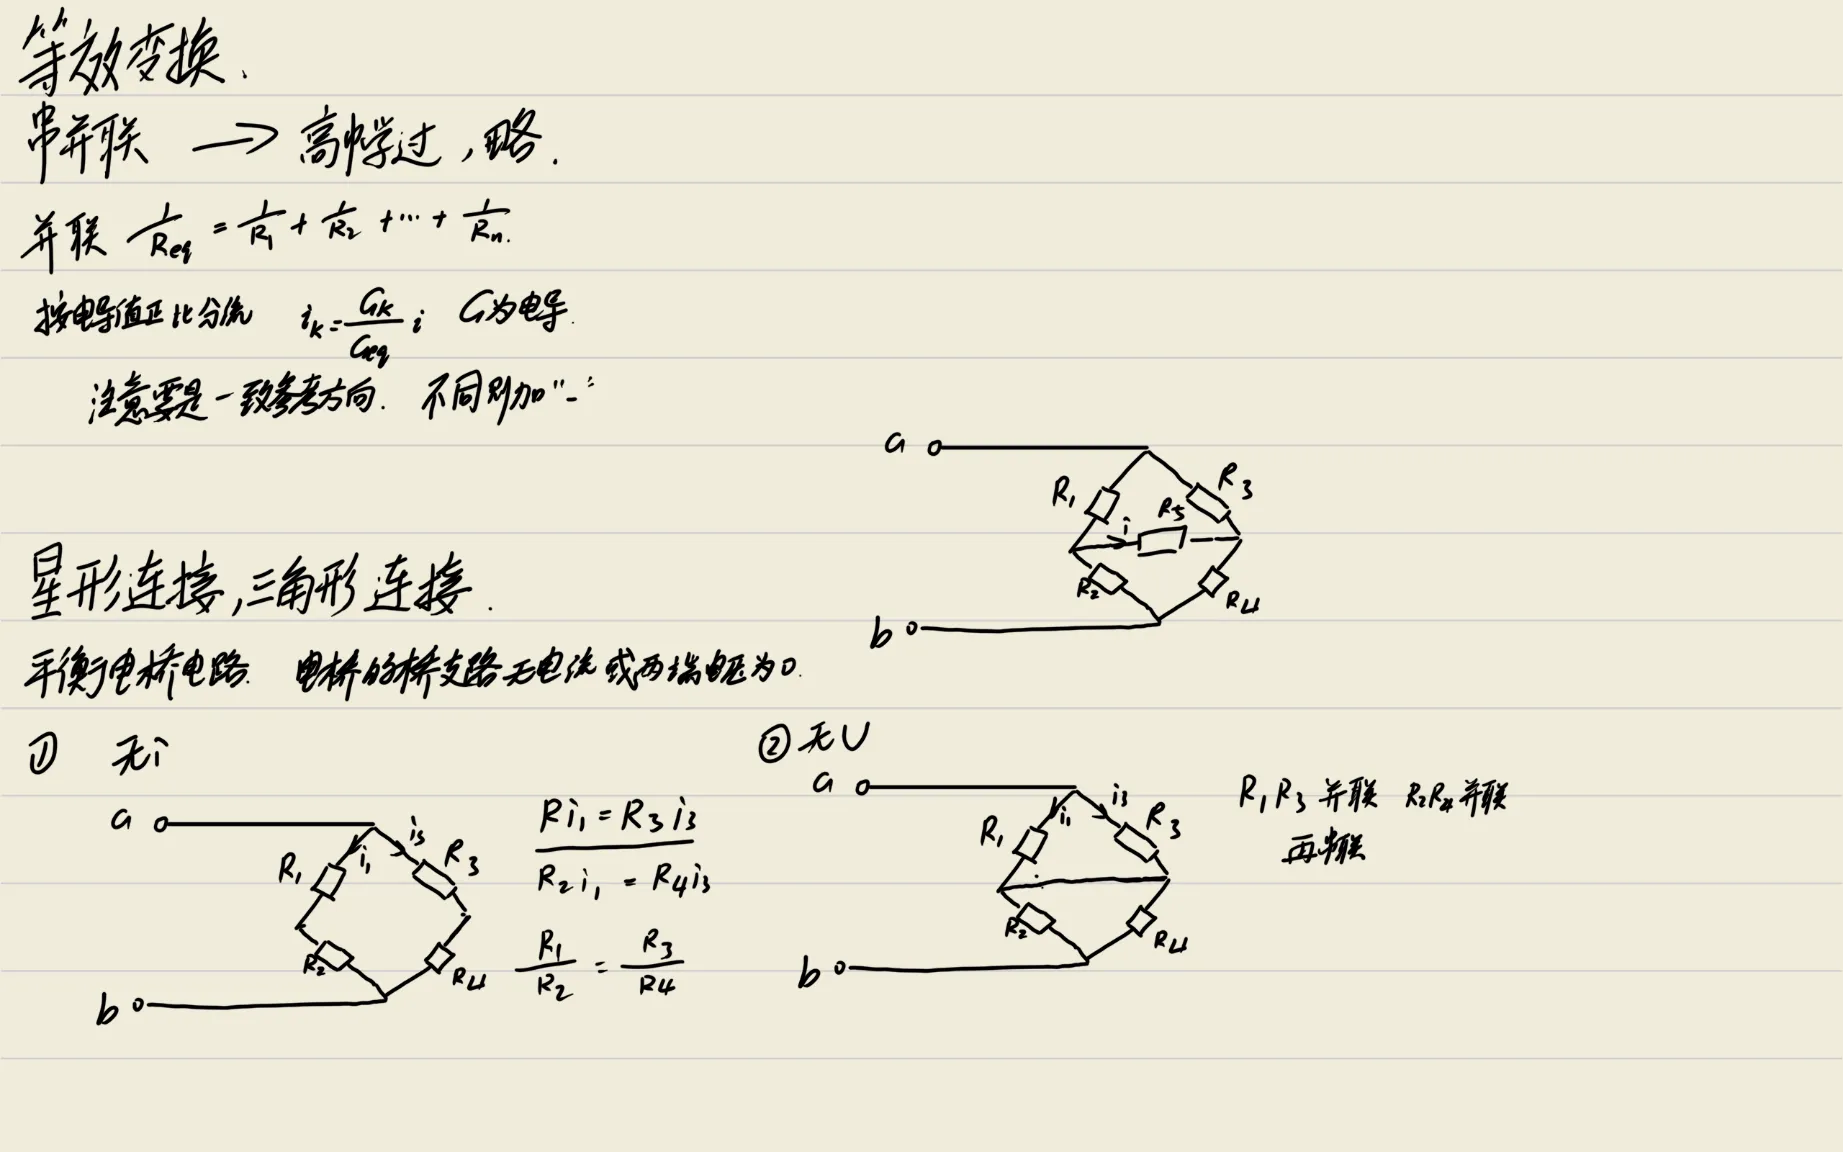 等效变换.
串并联 → 高中学过,略.
并联 1/Req = 1/R1 + 1/R2 +…+ 1/Rn.
按电导值正比分流 iK = GK/Geq i G为电导.
注意要是一致参考方向. 不同则加"-"
a
R1
R3
R5
i
R2
R4
b
星形连接,三角形连接.
平衡电桥电路. 电桥的桥支路无电流或两端电压为0.
① 无i
a
i1
i3
R1
R3
R2
R4
b
Ri1 = R3i3
R2i1 = R4i3
R1/R2 = R3/R4
② 无U
a
i1
i3
R1
R3
R2
R4
b
R1R3并联 R2R4并联
再串联